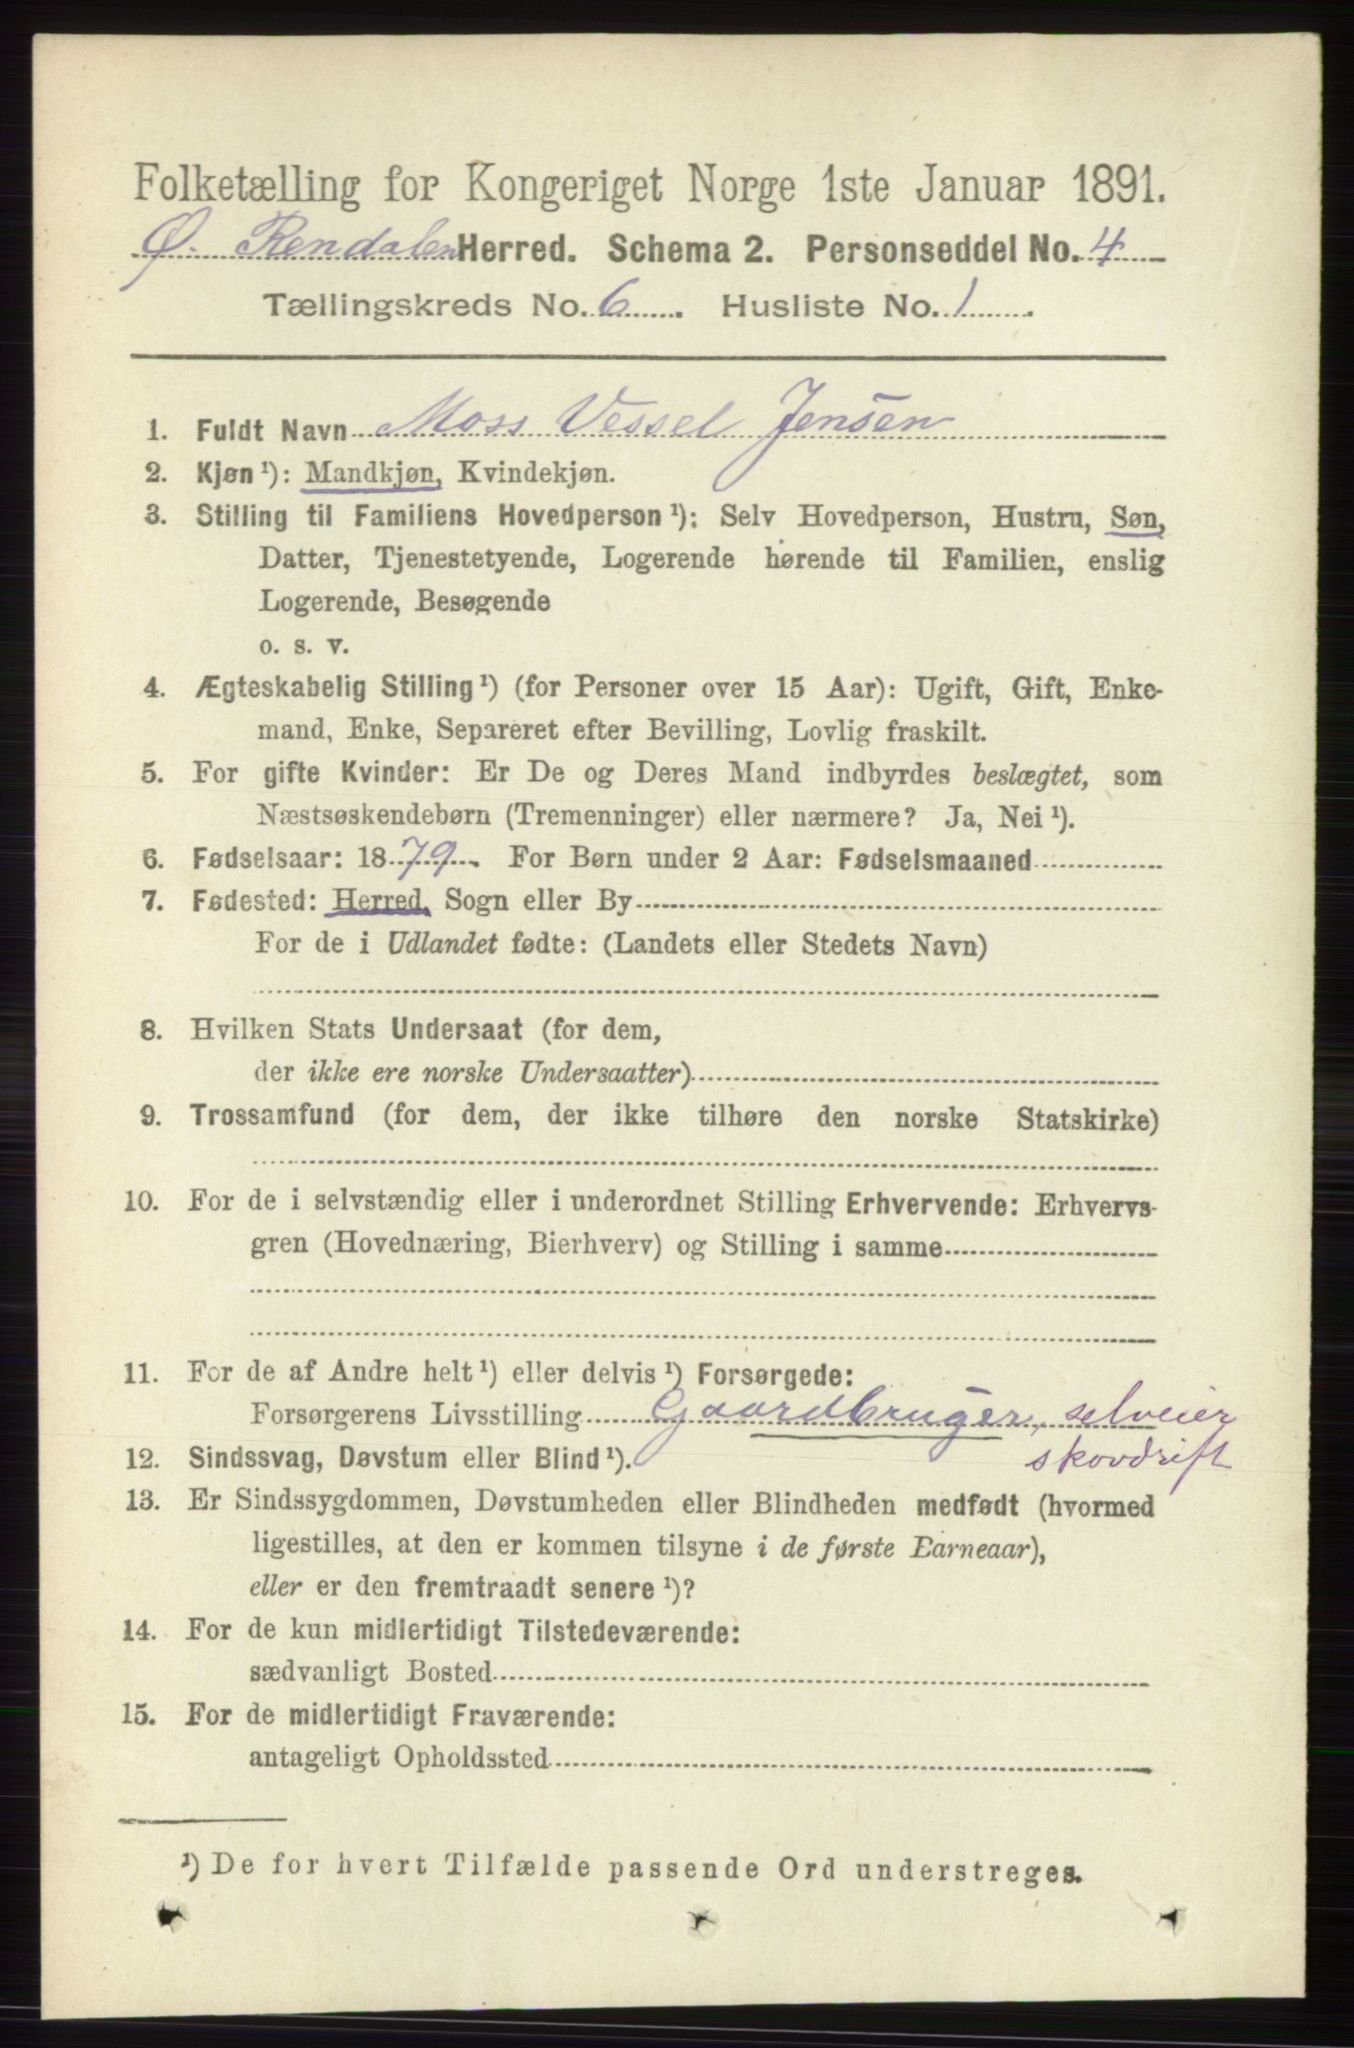 Folketælling for Kongeriget Norge 1ste Januar 1891.
Ø. Rendalen Herred. Schema 2. Personseddel No. 4
Tællingskreds No. 6. Husliste No. 1.
1. Fuldt Navn Moss Vessel Jensen
2. Kjøn ¹): Mandkjøn, Kvindekjøn.
3. Stilling til Familiens Hovedperson ¹): Selv Hovedperson, Hustru, Søn,
Datter, Tjenestetyende, Logerende hørende til Familien, enslig
Logerende, Besøgende
o. s. v.
4. Ægteskabelig Stilling ¹) (for Personer over 15 Aar): Ugift, Gift, Enke-
mand, Enke, Separeret efter Bevilling, Lovlig fraskilt.
5. For gifte Kvinder: Er De og Deres Mand indbyrdes beslægtet, som
Næstsøskendebørn (Tremenninger) eller nærmere? Ja, Nei ¹).
6. Fødselsaar: 1879. For Børn under 2 Aar: Fødselsmaaned
7. Fødested: Herred, Sogn eller By
For de i Udlandet fødte: (Landets eller Stedets Navn)
8. Hvilken Stats Undersaat (for dem,
der ikke ere norske Undersaatter)
9. Trossamfund (for dem, der ikke tilhøre den norske Statskirke)
10. For de i selvstændig eller i underordnet Stilling Erhvervende: Erhvervs-
gren (Hovednæring, Bierhverv) og Stilling i samme
11. For de af Andre helt ¹) eller delvis ¹) Forsørgede:
Forsørgerens Livsstilling Gaardbruger, selveier
skovdrift
12. Sindssvag, Døvstum eller Blind ¹).
13. Er Sindssygdommen, Døvstumheden eller Blindheden medfødt (hvormed
ligestilles, at den er kommen tilsyne i de første Barneaar),
eller er den fremtraadt senere ¹)?
14. For de kun midlertidigt Tilstedeværende:
sædvanligt Bosted
15. For de midlertidigt Fraværende:
antageligt Opholdssted
¹) De for hvert Tilfælde passende Ord understreges.